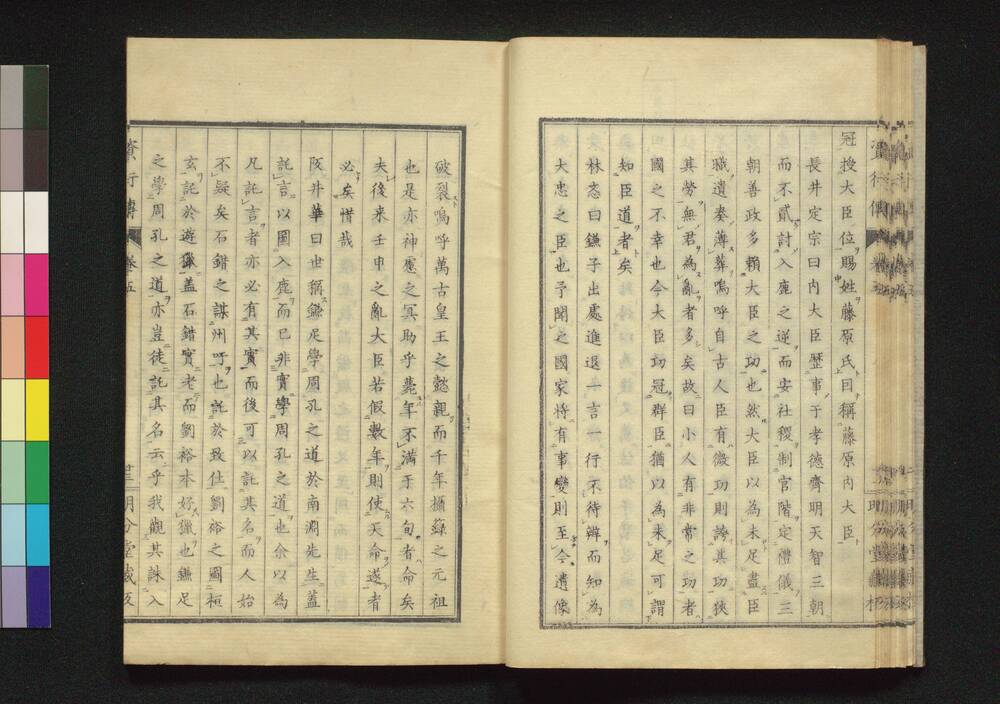 冠授大臣位賜姓藤原氏因稱藤原内大臣
長井定宗曰内大臣歷事于孝德齊明天智三朝
而不貳討入鹿之逆而安社稷制官階定禮儀三
朝善政多賴大臣之功也然大臣以為未足盡臣
職遺奏薄葬嗚呼自古人臣有微功則誇其功狹
其勞無君為亂者多矣故曰小人有非常之功者
國之不幸也今大臣功冠群臣猶以為未足可謂
知臣道者矣
林恕曰鎌子出處進退一言一行不待辨而知為
大忠之臣也予聞之國家将有事變則至今遺像
破裂嗚呼萬古皇王之懿親而千年攝籙之元祖
也是亦神慮之冥助乎薨年不滿于六旬者命矣
夫後來壬申之亂大臣若假數年則使天命遂者
必矣惜哉
阪井華曰世稱鎌足學周孔之道於南淵先生蓋
託言以圖入鹿而已非實學周孔之道也余以為
凡託言者亦必有其實而後可以託其名而人始
不疑矣石錯之謀州吁也託於致仕劉裕之圖桓
玄託於遊獵蓋石錯實老而劉裕本好獵也鎌足
之學周孔之道亦豈徒託其名云乎我觀其誅入
明分堂藏板